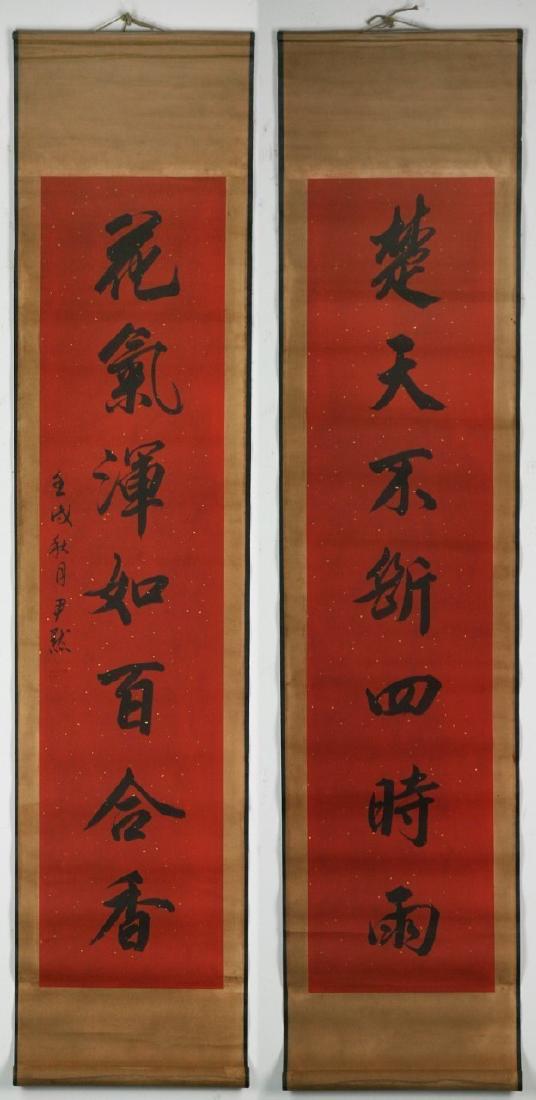 楚天不斷四時雨
花氣渾如百合香
壬戌秋月尹默